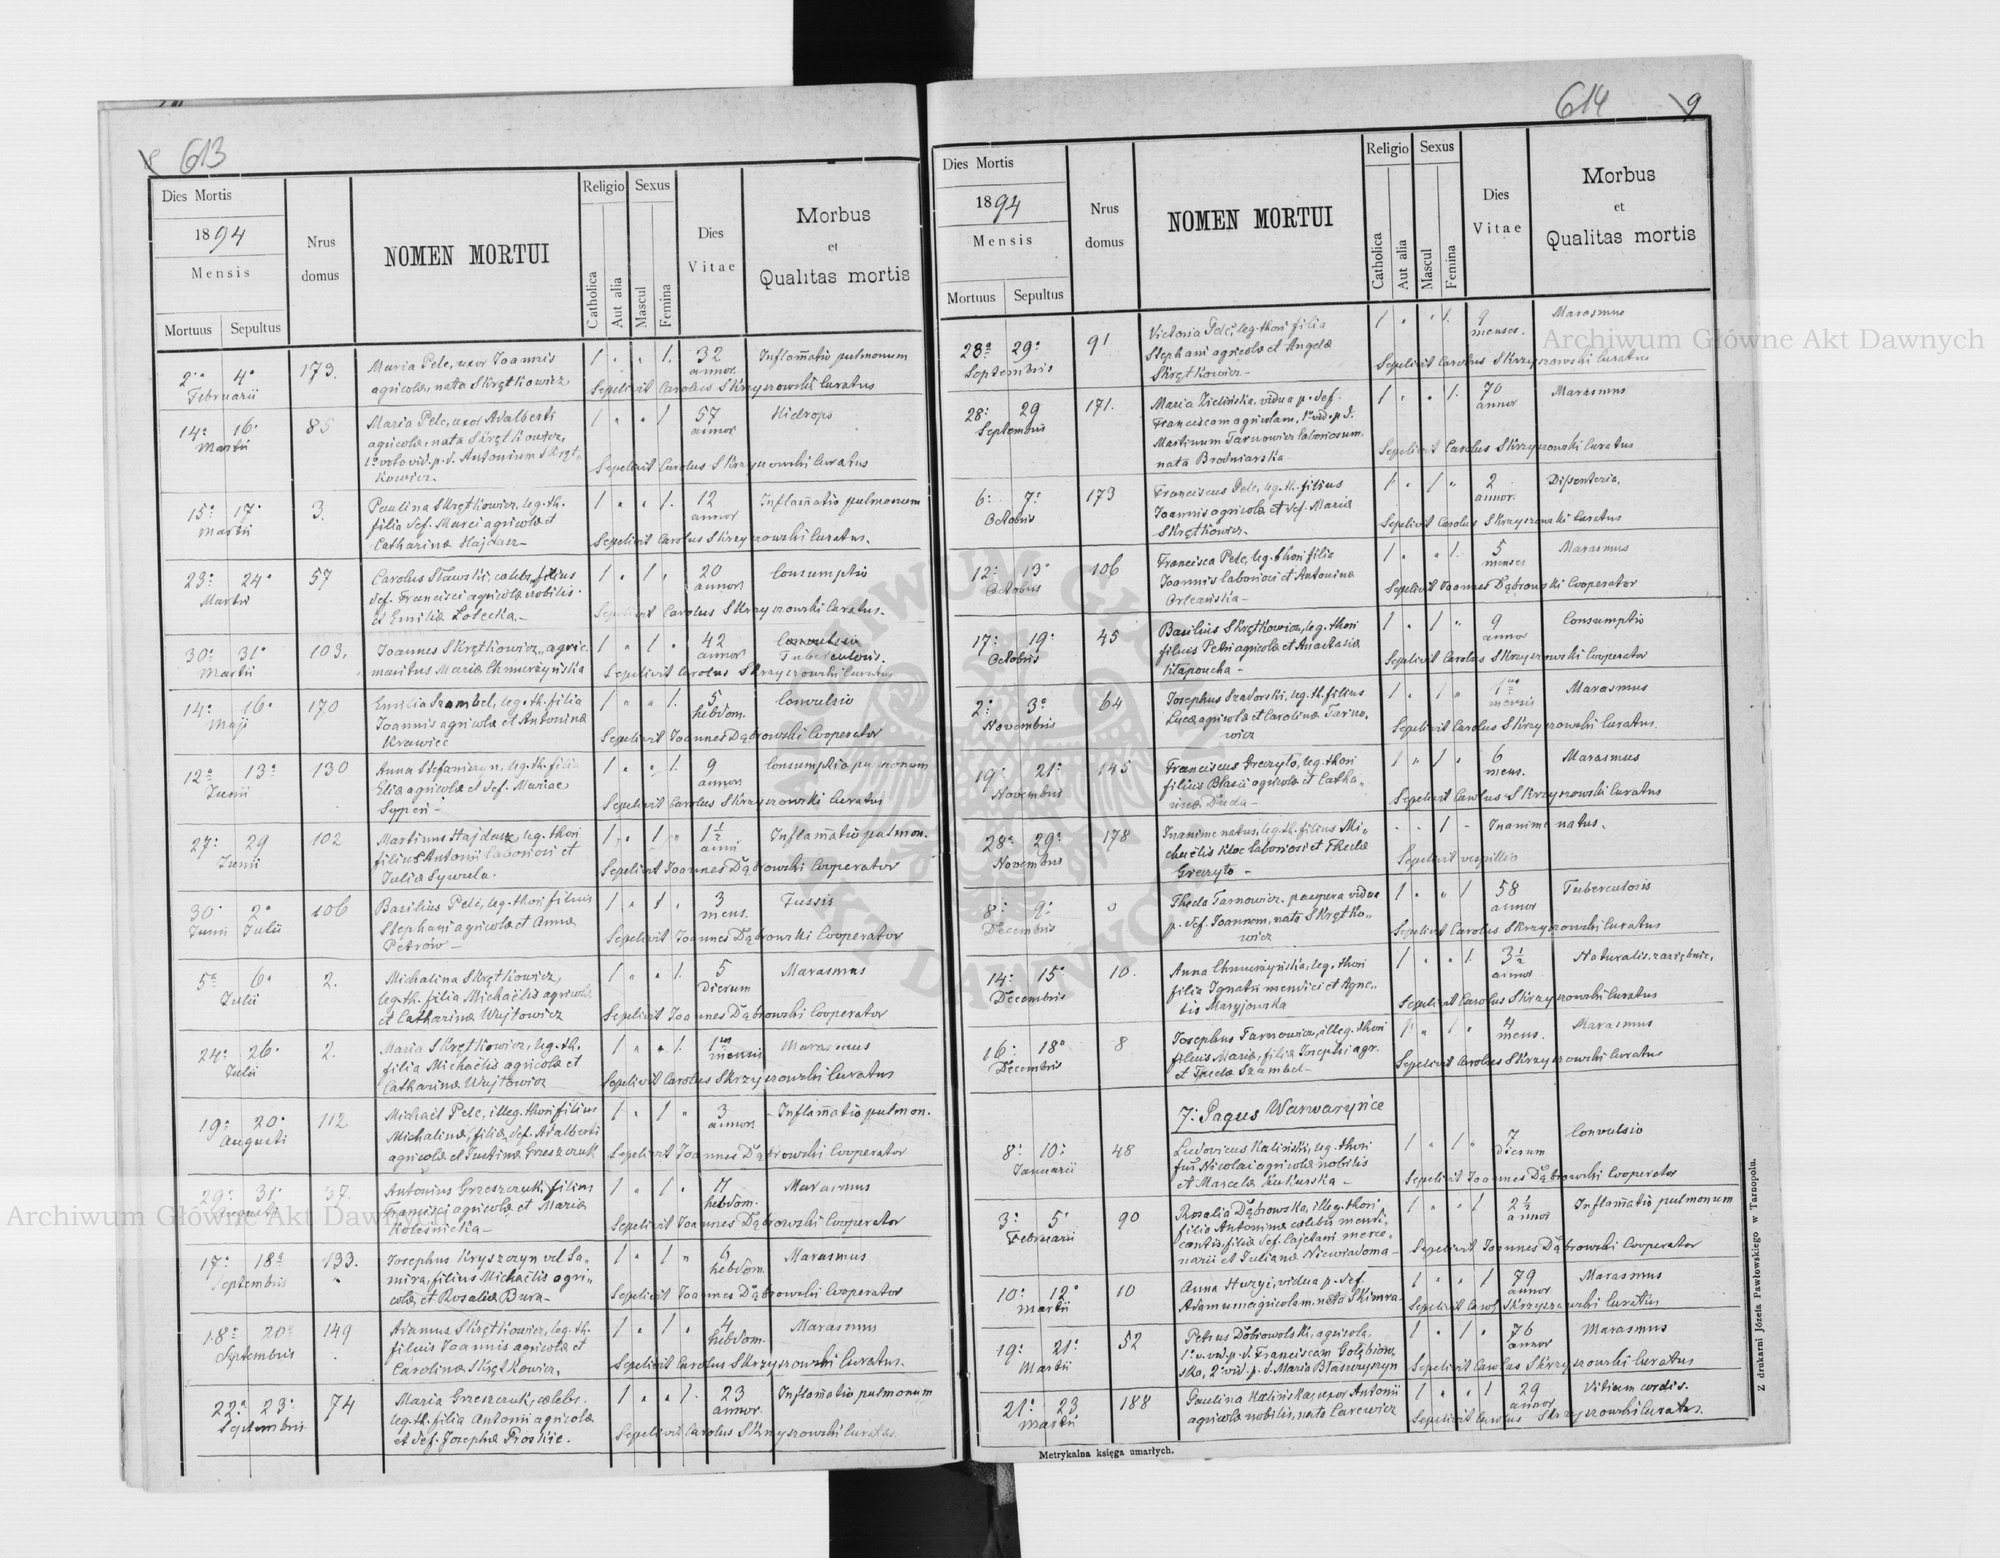 613
8
Dies Mortis
1894
Mensis
Mortuus Sepultus
Nrus
domus
NOMEN MORTUI
Religio
Catholica
Aut alia
Sexus
Mascul
Femina
Dies
Vitae
Morbus
et
Qualitas mortis
2a 4a
Februarii
173.
Maria Pelc, uxor Joannis
agricolæ, nata Skrętkowicz
1 „ „ 1.
32
annor.
Inflam̄atio pulmonum
Sepelivit Carolus Skrzyszowski Curatus
14a 16a
Martii
85
Maria Pelc, uxor Adalberti
agricolæ, nata Skrętkowicz,
1o voto vid. p. d. Antonium Skręt-
kowicz.
1 „ „ 1
57
annor.
Hidrops
Sepelivit Carolus Skrzyszowski Curatus
15a 17a
Martii
3.
Paulina Skrętkowicz, leg. th.
filia def. Marci agricolæ et
Catharinæ Hajdasz
1 „ „ 1.
12
annor
Inflam̄atio pulmonum
Sepelivit Carolus Skrzyszowski Curatus.
23a 24a
Martii
57
Carolus Sławski, cælebs, filius
def. Francisci agricolæ nobilis
et Emiliæ Łotecka
1 „ 1 „
20
annor.
Consumptio
Sepelivit Carolus Skrzyszowski Curatus.
30a 31a
Martii
103.
Joannes Skrętkowicz, agric.
maritus Mariæ Chmurzyńska
1 „ 1 „
42
annor.
Convulsio
Tuberculosis.
Sepelivit Carolus Skrzyszowski Curatus
14a 16a
Maji
170
Emilia Szambel, leg. th. filia
Joannis agricolæ et Antoninæ
Krawiec
1 „ „ 1.
5
hebdom.
Convulsio
Sepelivit Joannes Dąbrowski Cooperator
12a 13a
Junii
130
Anna Stefaniszyn, leg. th. filia
Eliæ agricolæ et def. Mariæ
Sypień
1 „ „ 1.
9
annor.
Consumptio pulmonum
Sepelivit Carolus Skrzyszowski Curatus
27a 29
Junii
102
Martinus Hajdasz, leg. thori
filius Antonii laboriosi et
Juliæ Sywula.
1 „ 1 „
1½
anni
Inflam̄atio pulmon.
Sepelivit Joannes Dąbrowski Cooperator
30a 2a
Junii Julii
106
Basilius Pelc, leg. thori filius
Stephani agricolæ et Annæ
Petrów
1 „ 1 „
3
mens.
Tussis
Sepelivit Joannes Dąbrowski Cooperator
5a 6a
Julii
2.
Michalina Skrętkowicz,
leg. th. filia Michaëlis agricolæ
et Catharinæ Wujtowicz
1 „ „ 1.
5
dierum
Marasmus
Sepelivit Joannes Dąbrowski Cooperator
24a 26a
Julii
2.
Maria Skrętkowicz, leg. th.
filia Michaëlis agricolæ et
Catharinæ Wujtowicz
1 „ „ 1.
mensis
Marasmus
Sepelivit Carolus Skrzyszowski Curatus
19a 20a
Augusti
112
Michaël Pelc, illeg. thori filius
Michalinæ, filiæ def. Adalberti
agricolæ et Justinæ Grzeszczuk
1 „ 1 „
3
annor.
Inflam̄atio pulmon.
Sepelivit Joannes Dąbrowski Cooperator
29a 31a
Augusti
37.
Antonius Grzeszczuk, filius
Francisci agricolæ et Mariæ
Koleśnicka
1 „ 1 „
hebdom.
Marasmus
Sepelivit Joannes Dąbrowski Cooperator
17a 18a
Septembris
133.
Josephus Kryszczyn vel Sa-
mira, filius Michaëlis agri-
colæ et Rosaliæ Bura
1 „ 1 „
6
hebdom.
Marasmus
Sepelivit Joannes Dąbrowski Cooperator
18a 20a
Septembris
149
Adamus Skrętkowicz, leg. th.
filius Joannis agricolæ et
Carolinæ Skrętkowicz,
1 „ 1 „
4
hebdom.
Marasmus
Sepelivit Carolus Skrzyszowski Curatus.
22a 23a
Septembris
74
Maria Grzeszczuk, cælebs.
leg. th. filia Antonii agricolæ
et def. Josephæ Proskie.
1 „ „ 1.
23
annor.
Inflam̄atio pulmonum
Sepelivit Carolus Skrzyszowski Curatus.
614
9
Dies Mortis
1894
Mensis
Mortuus Sepultus
Nrus
domus
NOMEN MORTUI
Religio
Catholica
Aut alia
Sexus
Mascul
Femina
Dies
Vitae
Morbus
et
Qualitas mortis
28a 29a
Septembris
91
Victoria Pelc, leg. thori filia
Stephani agricolæ et Angelæ
Skrętkowicz
1 „ „ 1.
9
menses.
Marasmus
Sepelivit Carolus Skrzyszowski Curatus
28a 29
Septembris
171.
Maria Zielińska, vidua p. def.
Franciscum agricolam, 1o vid. p. d.
Martinum Tarnowicz laboriosum.
nata Brodniarska
1 „ „ 1.
70
annor
Marasmus
Sepelivit Carolus Skrzyszowski Curatus
6a 7a
Octobris
173
Franciscus Pelc, leg. th. filius
Joannis agricolæ et def. Mariæ
Skrętkowicz.
1 „ 1 „
2
annor.
Dissenteria.
Sepelivit Carolus Skrzyszowski Curatus
12a 13a
Octobris
106
Francisca Pelc, leg. thori filia
Joannis laboriosi et Antoninæ
Orleańska
1 „ „ 1.
5
menses
Marasmus
Sepelivit Joannes Dąbrowski Cooperator
17a 19a
Octobris
45
Basilius Skrętkowicz, leg. thori
filius Petri agricolæ et Anastasiæ
Kłapoucha
1 „ 1 „
9
annor
Consumptio
Sepelivit Carolus Skrzyszowski Cooperator
2a 3a
Novembris
64
Josephus Szadorski, leg. th. filius
Lucæ agricolæ et Carolinæ Tarno-
wicz
1 „ 1 „
mensis
Marasmus
Sepelivit Carolus Skrzyszowski Curatus.
19a 21a
Novembris
145
Franciscus Greszyło, leg. thori
filius Blasii agricolæ et Catha-
rinæ Duda
1 „ 1 „
6
mens.
Marasmus
Sepelivit Carolus Skrzyszowski Curatus
28a 29a
Novembris
178
Inanime natus, leg. th. filius Mi-
chaëlis Kloc laboriosi et Theclæ
Greszyło
- - 1 -
Inanime natus.
Sepelivit vespillio
8a 9a
Decembris
Thecla Tarnowicz, paupera vidua
p. def. Joannem, nata Skrętko-
wicz
1 „ „ 1
58
annor
Tuberculosis
Sepelivit Carolus Skrzyszowski Curatus
14a 15a
Decembris
10.
Anna Chmurzyńska, leg. thori
filia Ignatii mendici et Agne-
tis Maryjowska
1 „ „ 1.
3½
annor
Naturalis.
Sepelivit Carolus Skrzyszowski Curatus
16a 18a
Decembris
8
Josephus Tarnowicz, illeg. thori
filius Mariæ, filiæ Josephi agr.
et Theclæ Szambel
1 „ 1 „
4
mens.
Marasmus
Sepelivit Carolus Skrzyszowski Curatus
7. Pagus Warwaryńce
8a 10a
Januarii
48
Ludovicus Kaliński, leg. thori
fius Nicolai agricolæ nobilis
et Marcelæ Żukurska
1 „ 1 „
7
dierum
Convulsio
Sepelivit Joannes Dąbrowski Cooperator
3a 5a
Februarii
90
Rosalia Dąbrowska, illeg. thori
filia Antoninæ cælebis mendi-
cantis, filiæ def. Cajetani merce-
narii et Julianæ Niewiadoma
1 „ „ 1
2½
annor
Inflam̄atio pulmonum
Sepelivit Joannes Dąbrowski Cooperator
10a 12a
Martii
10
Anna Huzyj, vidua p. def.
Adamum agricolam, nata Skimra
1 „ „ 1
79
annor
Marasmus
Sepelivit Carol. Skrzyszowski Curatus
19a 21a
Martii
52
Petrus Dobrowolski, agricola,
1o v. vid. p. d. Franciscam Gołębiow-
ska, 2o vid. p. d. Maria Błaszczyszyn
1 „ 1 „
76
annor
Marasmus
Sepelivit Carolus Skrzyszowski Curatus
21a 23
Martii
188
Paulina Kalińska, uxor Antonii
agricolæ nobilis, nata Carewicz
1 „ „ 1
29
annor
Vitium cordis.
Sepelivit Carolus Skrzyszowski Curatus.
Metrykalna księga umarłych.
Z drukarni Józefa Pawłowskiego w Tarnopolu.
Archiwum Główne Akt Dawnych
Archiwum Główne Akt Dawnych
ARCHIWUM GŁÓWNE AKT DAWNYCH